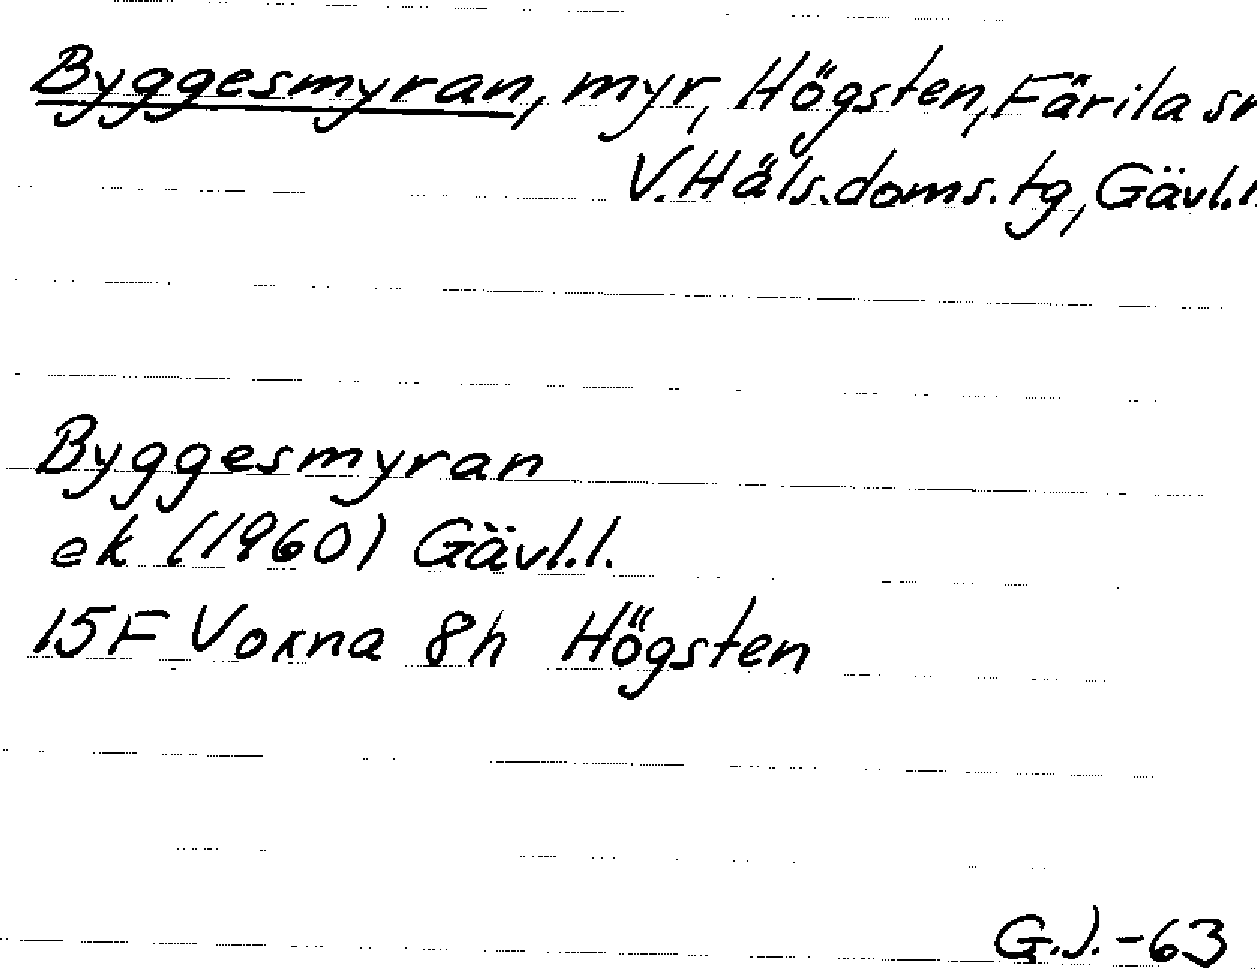 Byggesmyran, myr, Högsten, Färila sn
V.Häls.doms.tg, Gävl.l.
Byggesmyran
ek (1960) Gävl.l.
15F Voxna 8h Högsten
G.J.-63